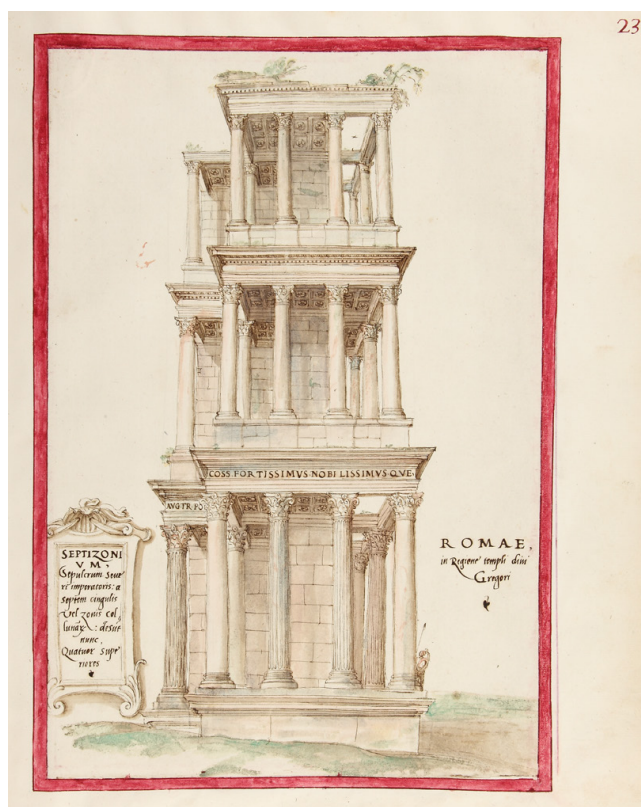 23
COSS FORTISSIMVS NOBILISSIMVS QVE.
AVG TR PO
SEPTIZONI
VM.
Sepulcrum Seue
ri imperatoris: a
septem cingulis
vel zonis col
lunarū: desūt
nunc.
Quatuor supe
riores
ROMAE.
in Regione templi diui
Gregori